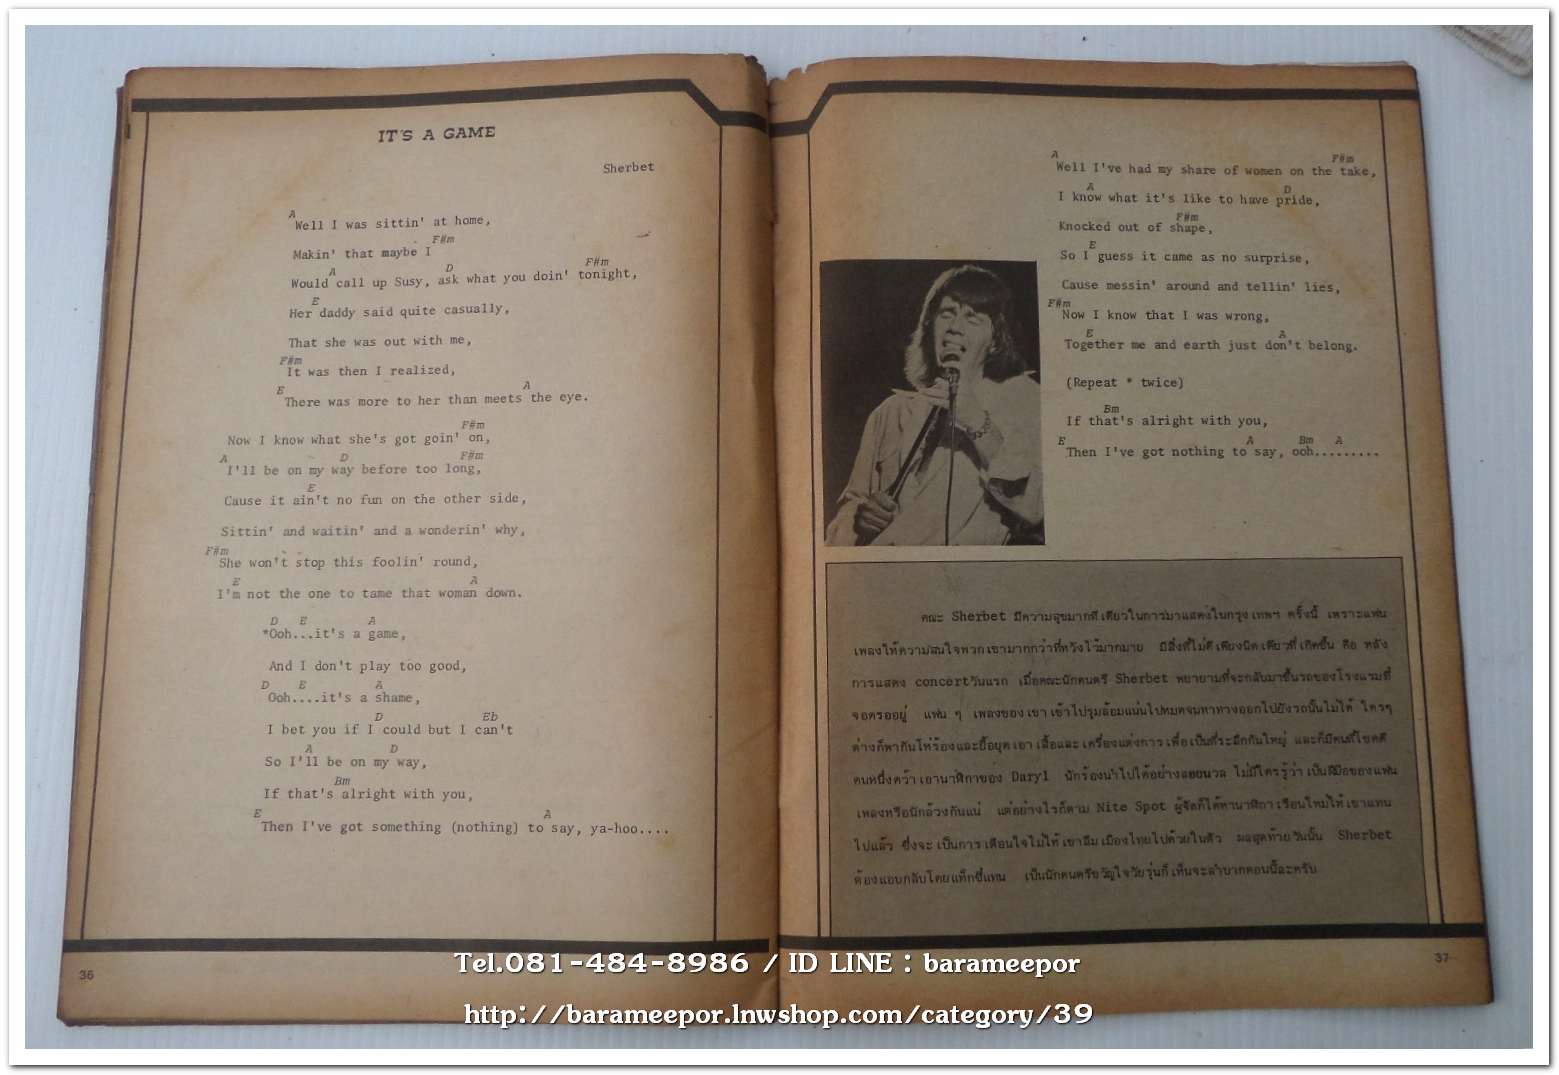 IT'S A GAME
Sherbet
A
Well I was sittin' at home,
F#m
Makin' that maybe I
A D F#m
Would call up Susy, ask what you doin' tonight,
E
Her daddy said quite casually,
That she was out with me,
F#m
It was then I realized,
E A
There was more to her than meets the eye.
F#m
Now I know what she's got goin' on,
A D F#m
I'll be on my way before too long,
E
Cause it ain't no fun on the other side,
Sittin' and waitin' and a wonderin' why,
F#m
She won't stop this foolin' round,
E A
I'm not the one to tame that woman down.
D E A
*Ooh...it's a game,
And I don't play too good,
D E A
Ooh....it's a shame,
D Eb
I bet you if I could but I can't
A D
So I'll be on my way,
Bm
If that's alright with you,
E A
Then I've got something (nothing) to say, ya-hoo....
36
A F#m
Well I've had my share of women on the take,
A D
I know what it's like to have pride,
F#m
Knocked out of shape,
E
So I guess it came as no surprise,
Cause messin' around and tellin' lies,
F#m
Now I know that I was wrong,
E A
Together me and earth just don't belong.
(Repeat * twice)
Bm
If that's alright with you,
E A Bm A
Then I've got nothing to say, ooh.........
คณะ Sherbet มีความสุขมากทีเดียวในการมาแสดงในกรุงเทพฯ ครั้งนี้ เพราะแฟน
เพลงให้ความสนใจพวกเขามากกว่าที่หวังไว้มากมาย มีสิ่งที่ไม่ดีเพียงนิดเดียวที่เกิดขึ้น คือ หลัง
การแสดง concertวันแรก เมื่อคณะนักดนตรี Sherbet พยายามที่จะกลับมาขึ้นรถของโรงแรมที่
จอดรออยู่ แฟน ๆ เพลงของเขา เข้าไปรุมล้อมแน่นไปหมดจนหาทางออกไปยังรถนั้นไม่ได้ ใครๆ
ต่างก็พากันโห่ร้องและยื้อยุดเอาเสื้อและเครื่องแต่งการเพื่อเป็นที่ระลึกกันใหญ่ และก็มีคนที่โชคดี
คนหนึ่งคว้าเอานาฬิกาของ Daryl นักร้องนำไปได้อย่างลอยนวล ไม่มีใครรู้ว่าเป็นฝีมือของแฟน
เพลงหรือนักล้วงกันแน่ แต่อย่างไรก็ตาม Nite Spot ผู้จัดก็ได้หานาฬิกาเรือนใหม่ให้เขาแทน
ไปแล้ว ซึ่งจะเป็นการเตือนใจไม่ให้เขาลืมเมืองไทยไปด้วยในตัว ผลสุดท้ายวันนั้น Sherbet
ต้องแอบกลับโดยแท็กซี่แทน เป็นนักดนตรีขวัญใจวัยรุ่นก็เห็นจะลำบากตอนนี้ละครับ
37
Tel.081-484-8986 / ID LINE : barameepor
http://barameepor.lnwshop.com/category/39